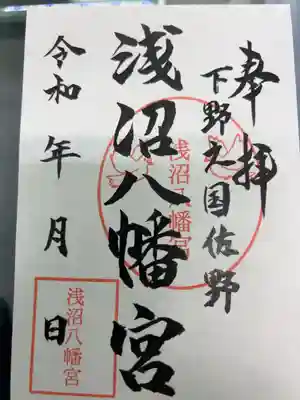 奉拝
下野之国佐野
浅沼八幡宮
浅沼八幡宮
令和年月日
浅沼八幡宮